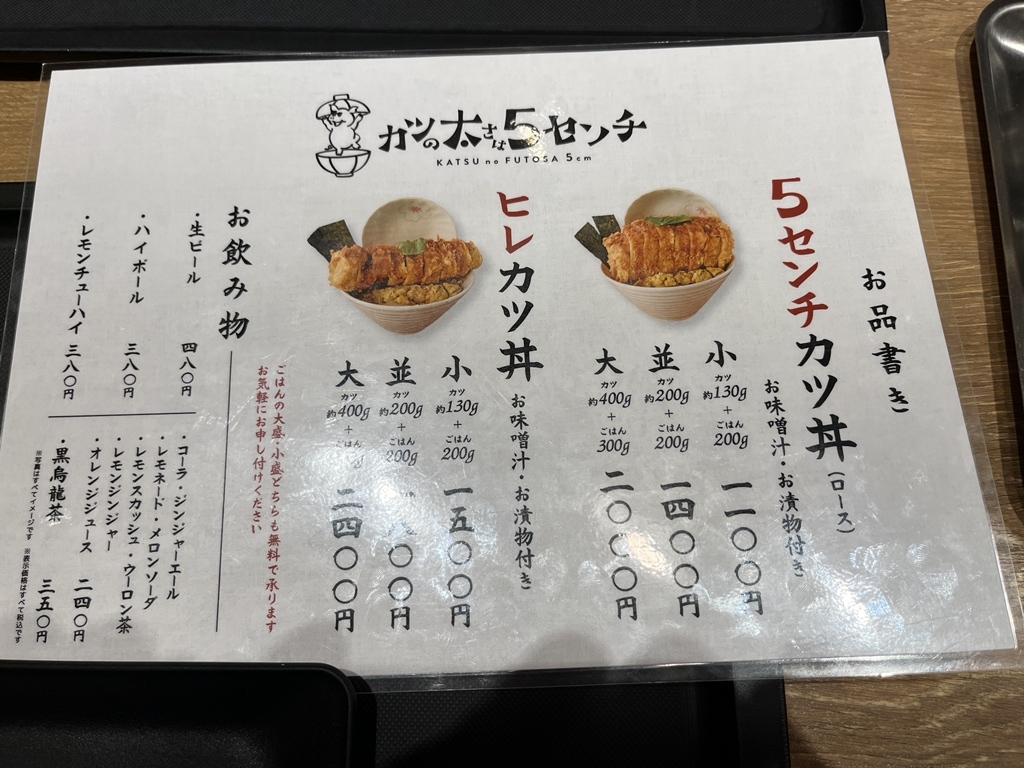 カツの太さは5センチ
KATSU no FUTOSA 5cm
お品書き
5センチカツ丼(ロース)
お味噌汁・お漬物付き
小 カツ約130g+ごはん200g 一一〇〇円
並 カツ約200g+ごはん200g 一四〇〇円
大 カツ約400g+ごはん300g 二〇〇〇円
ヒレカツ丼
お味噌汁・お漬物付き
小 カツ約130g+ごはん200g 一五〇〇円
並 カツ約200g+ごはん200g 〇〇円
大 カツ約400g+ごはん g 二四〇〇円
ごはんの大盛・小盛どちらも無料で承ります
お気軽にお申し付けください
お飲み物
・生ビール 四八〇円
・ハイボール 三八〇円
・レモンチューハイ 三八〇円
・コーラ・ジンジャーエール
・レモネード・メロンソーダ
・レモンスカッシュ・ウーロン茶
・レモンジンジャー
・オレンジジュース 二四〇円
・黒烏龍茶 三五〇円
※写真はすべてイメージです ※表示価格はすべて税込です